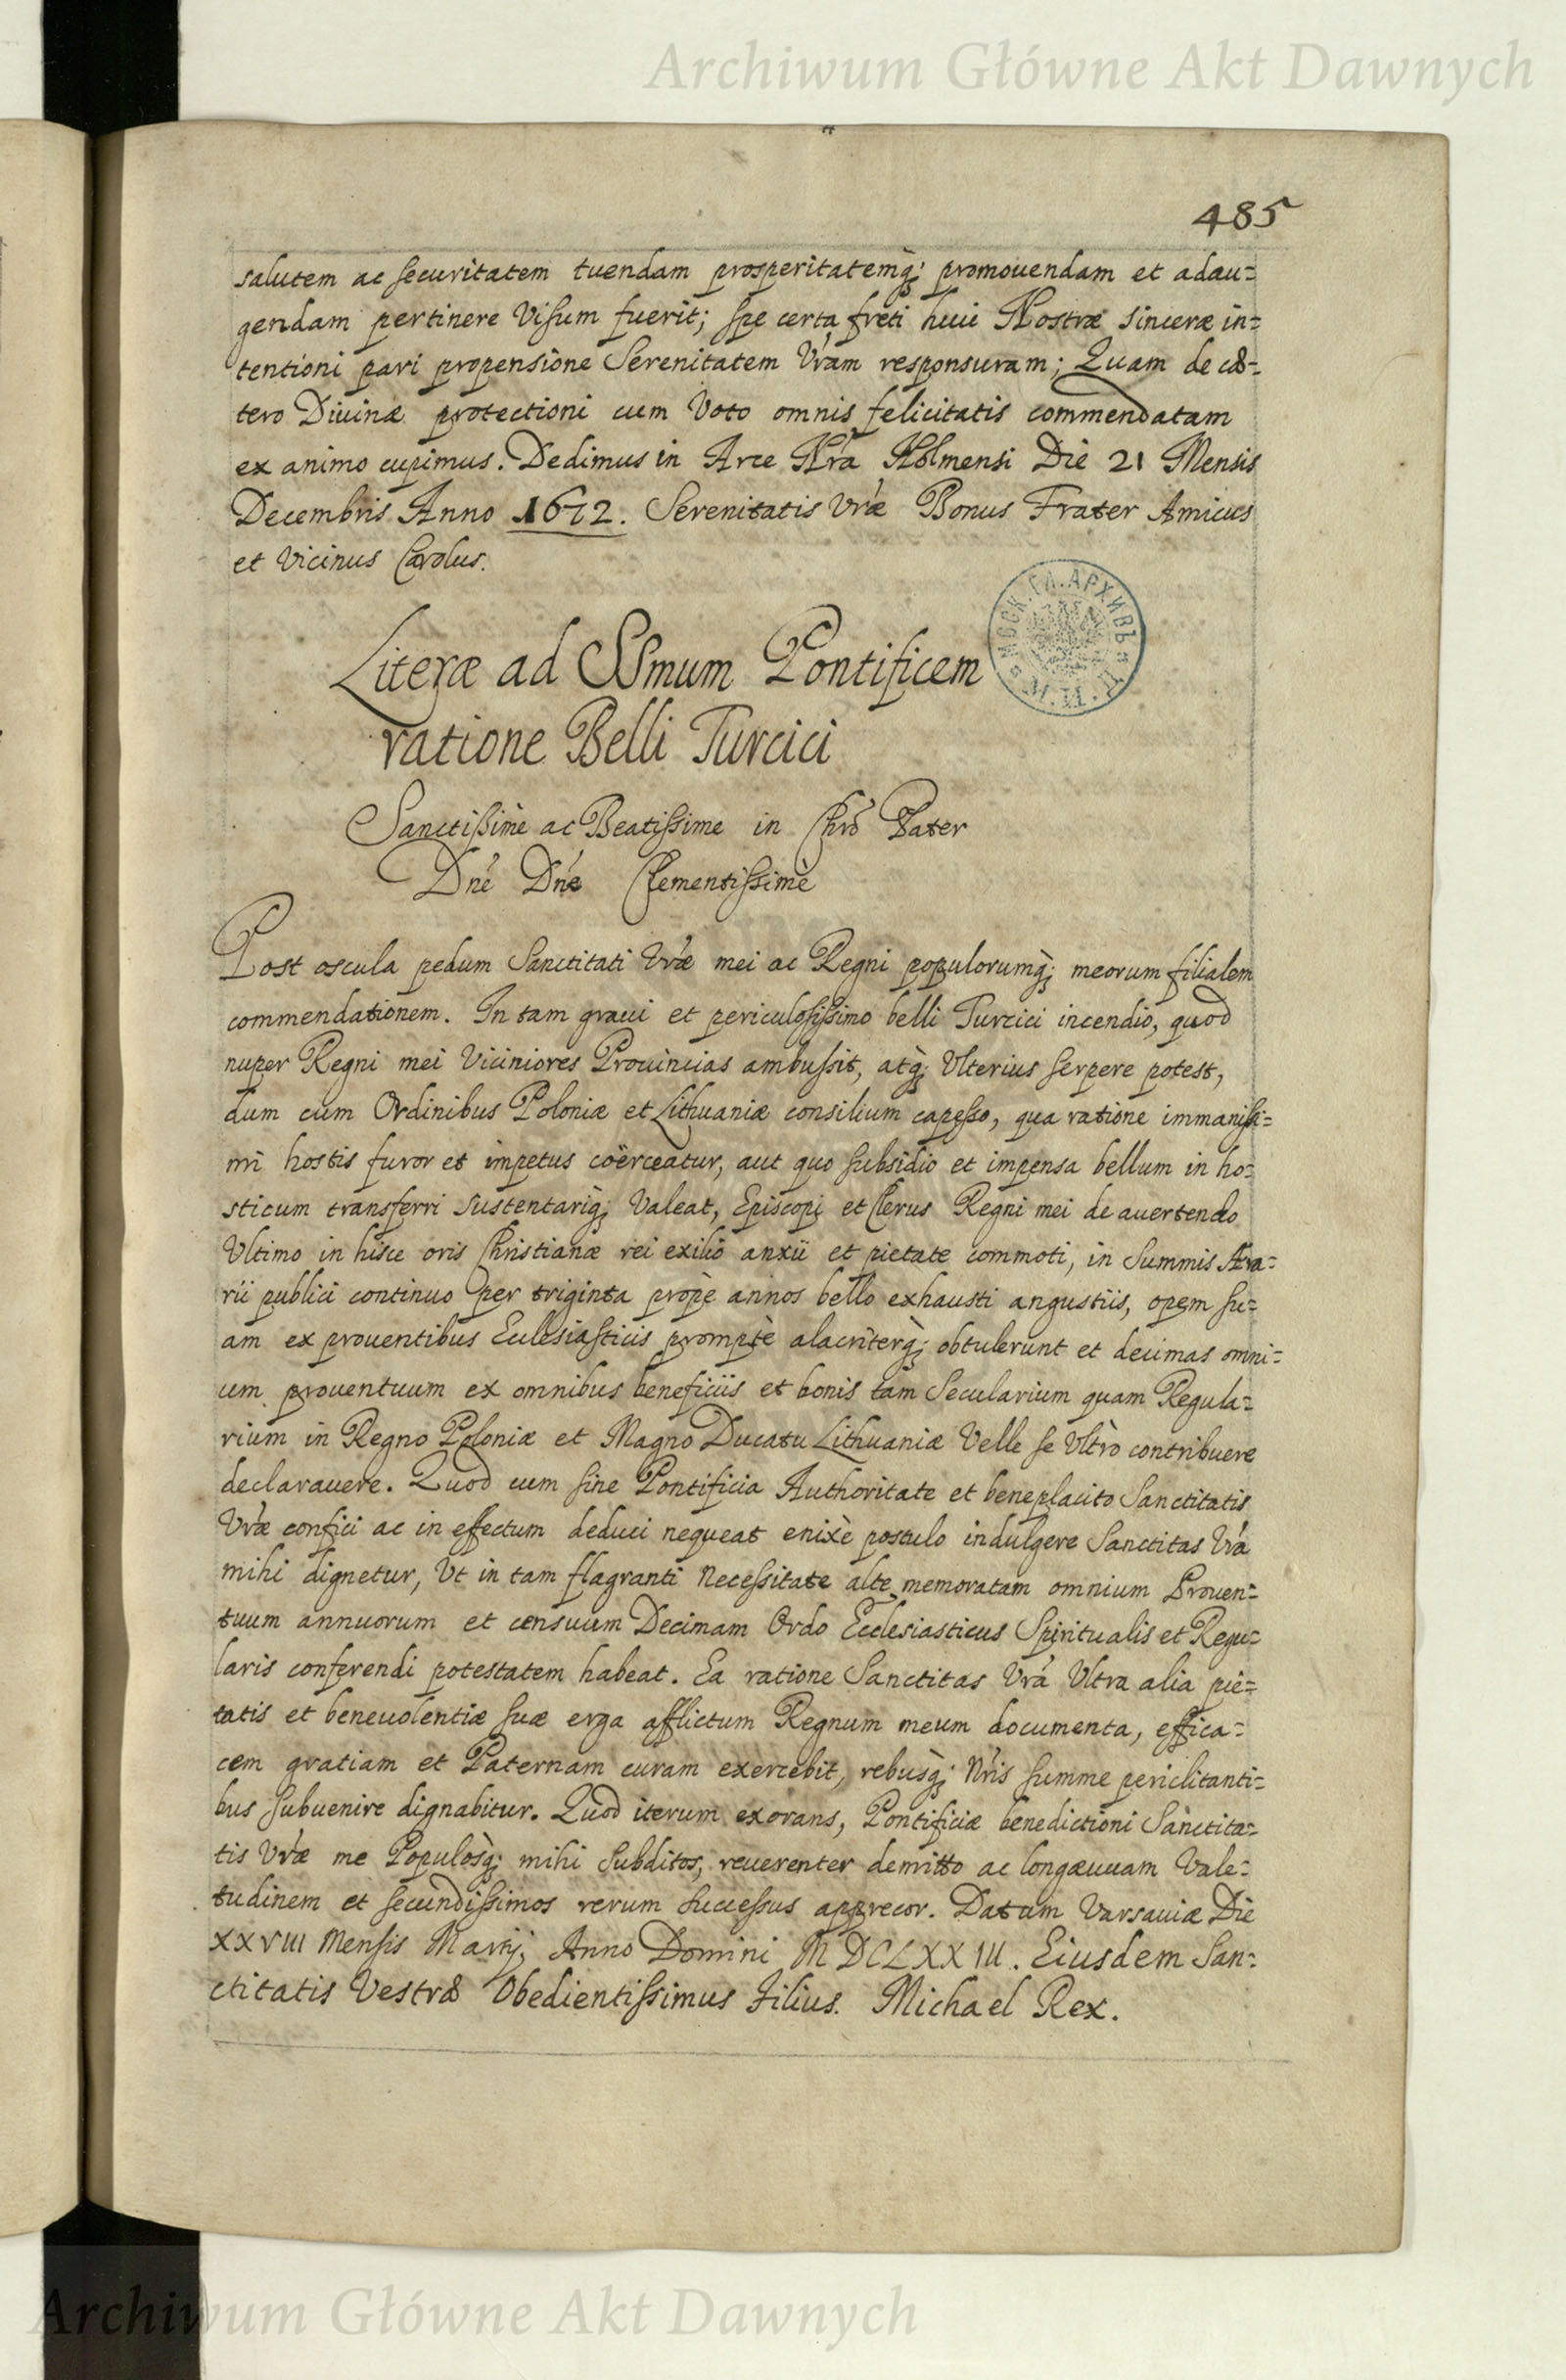 Archiwum Główne Akt Dawnych
485
salutem ac securitatem tuendam prosperitatemq; promouendam et adau=
gendam pertinere Visum fuerit; spe certa freti huic Nostræ sinceræ in=
tentioni pari propensione Serenitatem Vram responsuram; Quam de cæ=
tero Diuinæ protectioni cum Voto omnis felicitatis commendatam
ex animo cupimus. Dedimus in Arce Nra Holmensi Die 21 Mensis
Decembris Anno 1672. Serenitatis Vræ Bonus Frater Amicus
et Vicinus Carolus.
МОСК.ГЛ.АРХИВЪ
Literæ ad SSmum Pontificem
ratione Belli Turcici
Sanctissime ac Beatissime in Chro Pater
Dne Dne Clementissime
Post oscula pedum Sanctitati Vræ mei ac Regni populorumq; meorum filialem
commendationem. In tam graui et periculosissimo belli Turcici incendio, quod
nuper Regni mei Viciniores Prouincias ambussit, atq; Vlterius serpere potest,
dum cum Ordinibus Poloniæ et Lithuaniæ consilium capesso, qua ratione immanissi=
mi hostis furor et impetus coërceatur, aut quo subsidio et impensa bellum in ho=
sticum transferri sustentariq; Valeat, Episcopi et Clerus Regni mei de auertendo
Vltimo in hisce oris Christianæ rei exilio anxii et pietate commoti, in summis Æra=
rii publici continuo per triginta prope annos bello exhausti angustiis, opem su=
am ex prouentibus Ecclesiasticis promptè alacriterq; obtulerunt et decimas omni=
um prouentuum ex omnibus beneficiis et bonis tam Secularium quam Regula=
rium in Regno Poloniæ et Magno Ducatu Lithuaniæ Velle se Vltrò contribuere
declarauere. Quod cum sine Pontificia Authoritate et beneplacito Sanctitatis
Vræ confici ac in effectum deduci nequeat enixè postulo indulgere Sanctitas Vra
mihi dignetur, Vt in tam flagranti Necessitate alte memoratam omnium Prouen=
tuum annuorum et censuum Decimam Ordo Ecclesiasticus Spiritualis et Regu=
laris conferendi potestatem habeat. Ea ratione Sanctitas Vra Vltra alia pie=
tatis et beneuolentiæ suæ erga afflictum Regnum meum documenta, effica=
cem gratiam et Paternam curam exercebit, rebusq; Nris summe periclitanti=
bus subuenire dignabitur. Quod iterum exorans, Pontificiæ benedictioni Sanctita=
tis Vræ me Populosq; mihi subditos, reuerenter demitto ac longæuuam Vale=
tudinem et secundissimos rerum successus apprecor. Datum Varsauiæ Die
XXVIII Mensis Martij Anno Domini MDCLXXIII. Eiusdem San=
ctitatis Vestræ Obedientissimus Filius. Michael Rex.
Archiwum Główne Akt Dawnych